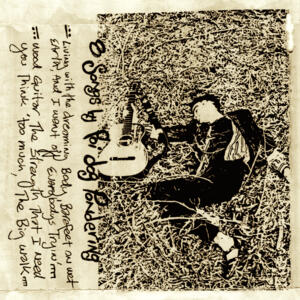 8 Songs by Poi Dog Pondering
Living with the dreaming Body, Barefoot on wet
Earth, And I went off Everybody's Tryin'
Wood Guitar, The Strength That I need
You Think too much, The Big walk